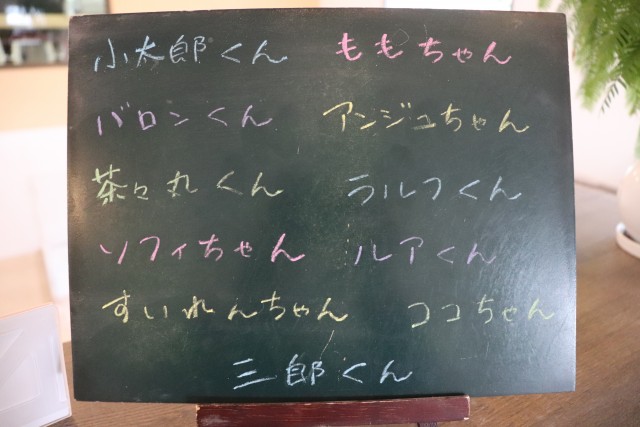 小太郎くん ももちゃん
バロンくん アンジュちゃん
茶々丸くん ラルフくん
ソフィちゃん ルアくん
すいれんちゃん ココちゃん
三郎くん